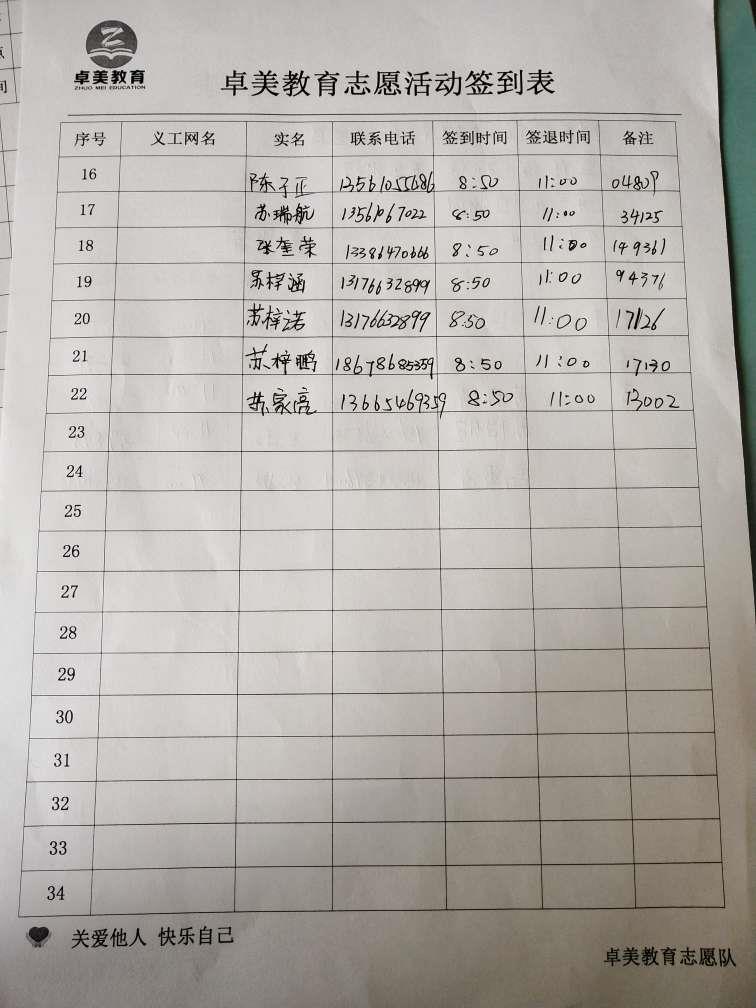 卓美教育
ZHUO MEI EDUCATION
卓美教育志愿活动签到表
序号 义工网名 实名 联系电话 签到时间 签退时间 备注
16 陈子正 13561055686 8:50 11:00 04809
17 苏瑞航 1356067022 8:50 11:00 34125
18 张奎荣 13386470666 8:50 11:00 149361
19 苏梓涵 13176632899 8:50 11:00 94376
20 苏梓诺 13176632899 8:50 11:00 17126
21 苏梓鹏 18678685359 8:50 11:00 17130
22 苏家亮 13665469359 8:50 11:00 13002
23
24
25
26
27
28
29
30
31
32
33
34
关爱他人 快乐自己
卓美教育志愿队